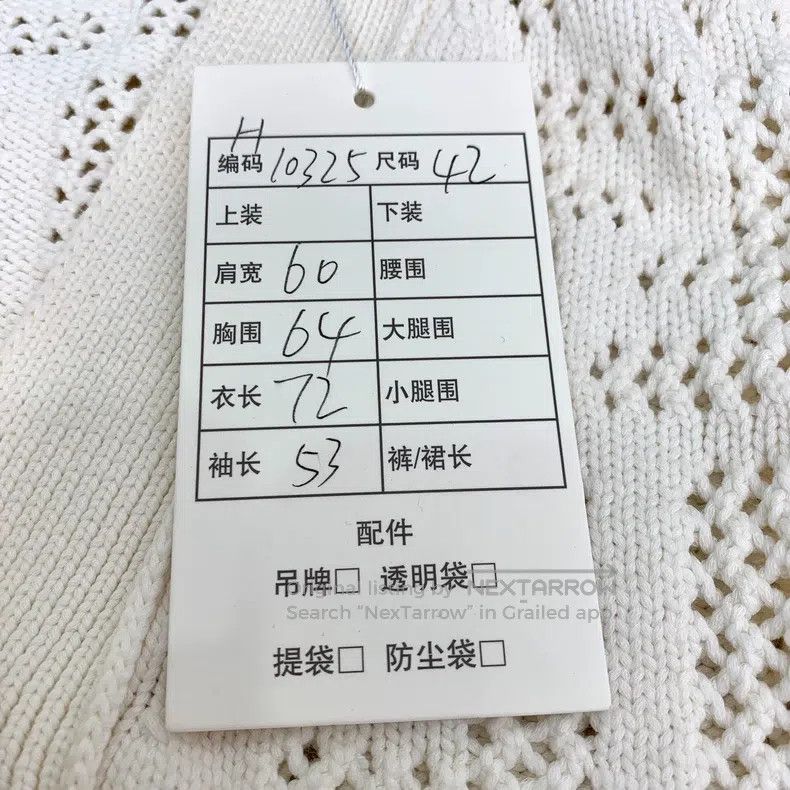 H
编码 10325 尺码 42
上装 下装
肩宽 60 腰围
胸围 64 大腿围
衣长 72 小腿围
袖长 53 裤/裙长
配件
吊牌□ 透明袋□
Original listing by NEXTARROW
Search "NexTarrow" in Grailed app
提袋□ 防尘袋□